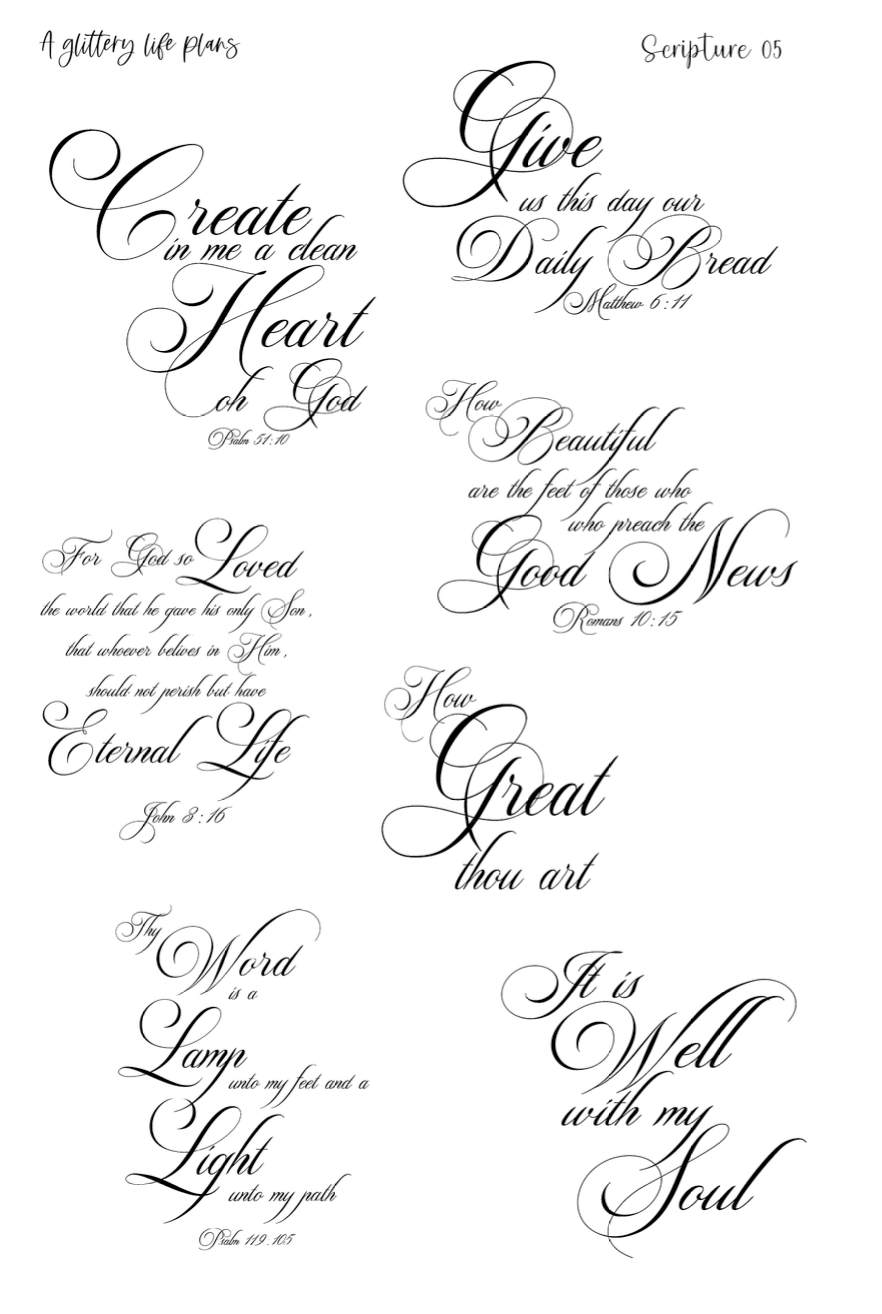 A glittery life plans
Scripture 05
Create
in me a clean
Heart
oh God
Psalm 51:10
Give
us this day our
Daily Bread
Matthew 6:11
How
Beautiful
are the feet of those who
who preach the
Good News
Romans 10:15
For God so Loved
the world that he gave his only Son,
that whoever belives in Him,
should not perish but have
Eternal Life
John 3:16
How
Great
thou art
Thy
Word
is a
Lamp
unto my feet and a
Light
unto my path
Psalm 119:105
It is
Well
with my
Soul